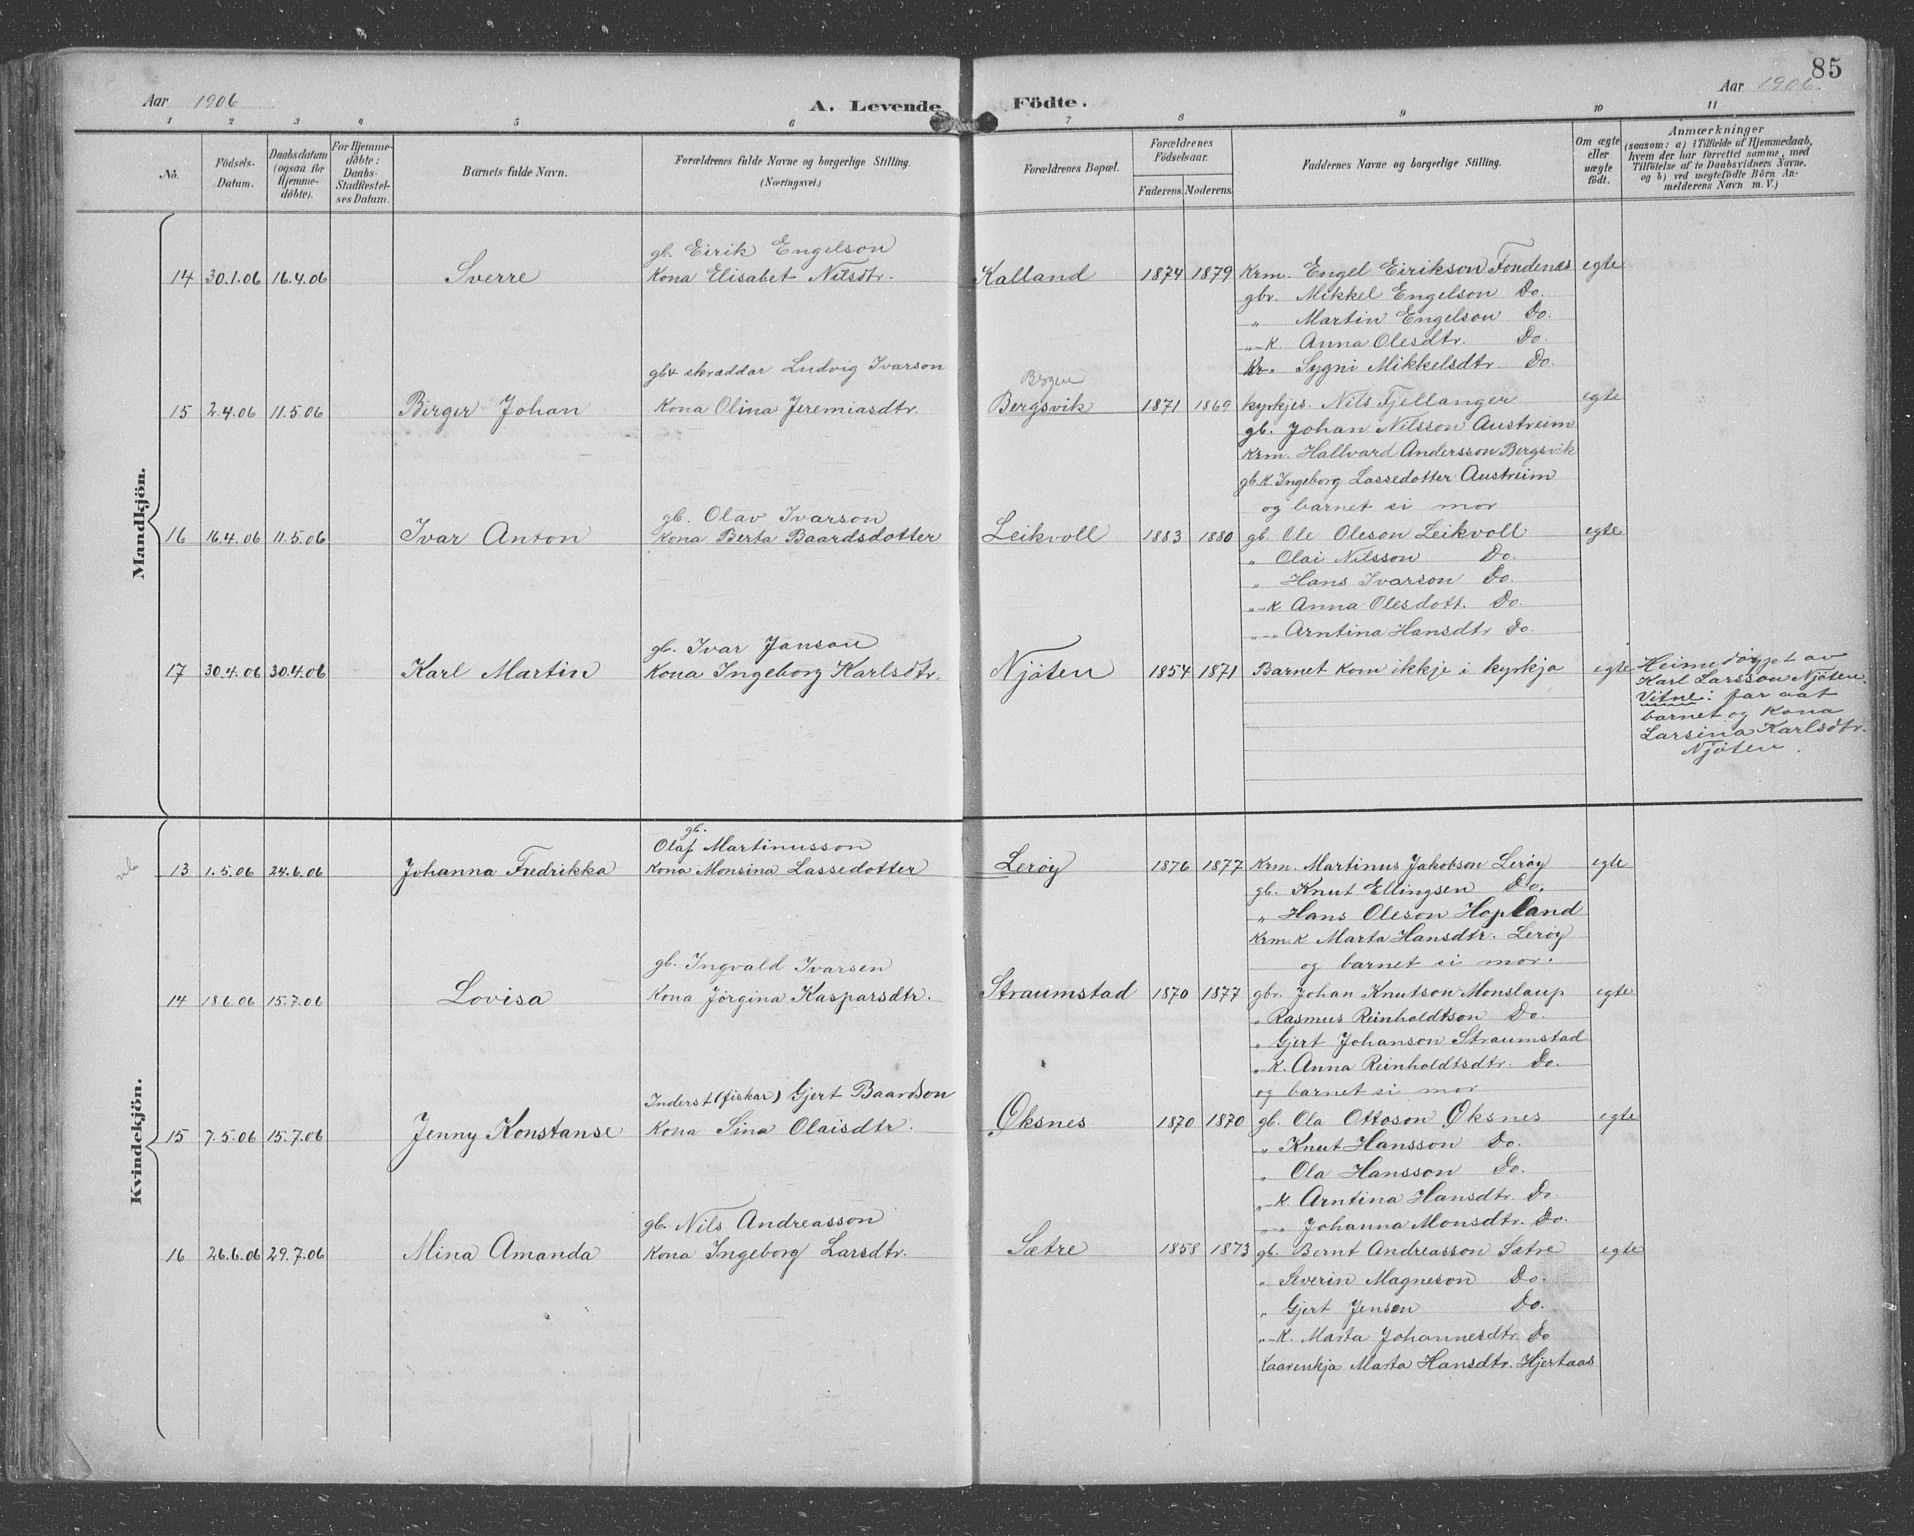 85
Aar 1906
A. Levende Födte.
Aar 1906.
1 2 3 4 5 6 7 8 9 10 11
No.
Födsels-Datum.
Daabsdatum (ogsaa for Hjemme-döbte).
For Hjemme-döbte: Daabs-Stadfæstel-ses Datum.
Barnets fulde Navn.
Forældrenes fulde Navne og borgerlige Stilling. (Næringsvei.)
Forældrenes Bopæl.
Forældrenes Födselsaar.
Faderens. Moderens.
Faddernes Navne og borgerlige Stilling.
Om ægte eller uægte födt.
Anmærkninger
(saasom: a) i Tilfælde af Hjemmedaab, hvem der har forrettet samme, med Tilföielse af to Daabsvidners Navne. og b) ved uægtefödte Börn Anmelderens Navn m. V.)
Mandkjön.
gb. Eirik Engelson
14 30.1.06 16.4.06 Sverre Kona Elisabet Nilsdtr. Kalland 1874 1879 Krm. Engel Eirikson Fondenes egte
gbr. Mikkel Engelson Do.
" Martin Engelson Do.
"-K. Anna Olesdtr. Do.
Kr-" Sygni Mikkelsdtr. Do.
gbr skræddar Ludvig Ivarson
15 2.4.06 11.5.06 Birger Johan Kona Olina Jeremiasdtr. Bergsvik 1871 1869 kyrkjes. Nils Fjellanger egte
gb. Johan Nilsson Austreim
Krm. Hallvard Andersson Bergsvik
gb.K. Ingeborg Lassedotter Austreim
og barnet si mor
gb. Olav Ivarson
16 16.4.06 11.5.06 Ivar Anton Kona Berta Baardsdotter Leikvoll 1883 1880 gb. Ole Oleson Leikvoll egte
" Olai Nilsson Do.
" Hans Ivarson Do.
"-K Anna Olesdott. Do.
"-" Arntina Hansdtr Do.
gb. Ivar Janson
17 30.4.06 30.4.06 Karl Martin Kona Ingeborg Karlsdtr. Njøten 1854 1871 Barnet kom ikkje i kyrkja egte
Heimedøypt av
Karl Larsson Njøten.
Vitne: far aat
barnet og Kona
Larsina Karlsdtr.
Njøten.
Kvindekjön.
gb.
Olaf Martinusson
13 1.5.06 24.6.06 Johanna Fredrikka Kona Monsina Lassedotter Lerøy 1876 1877 Krm. Martinus Jakobson Lerøy egte
gb. Knut Ellingsen Do.
" Hans Oleson Hopland
Krm.K Marta Hansdtr. Lerøy
og barnet si mor.
gb. Ingvald Ivarsen
14 18.6.06 15.7.06 Lovisa Kona Jørgina Kasparsdtr. Straumstad 1870 1877 gbr. Johan Knutson Monslaup egte
" Rasmus Reinholdtson Do.
" Gjert Johanson Straumstad
"K. Anna Reinholdtsdtr. Do.
og barnet si mor
Inderst (fiskar) Gjert Baardson
15 7.5.06 15.7.06 Jenny Konstanse Kona Sina Olaisdtr. Øksnes 1870 1870 gb. Ola Ottoson Øksnes egte
" Knut Hansson Do.
" Ola Hansson Do.
"-K. Arntina Hansdtr. Do.
"-" Johanna Monsdtr. Do.
gb. Nils Andreasson
16 26.6.06 29.7.06 Mina Amanda Kona Ingeborg Larsdtr. Sætre 1858 1873 gb. Bernt Andreasson Sætre egte
" Severin Magneson Do.
" Gjert Jensen Do.
"-K. Marta Johannesdtr. Do
Kaarenkja Marta Hansdtr. Hjertaas